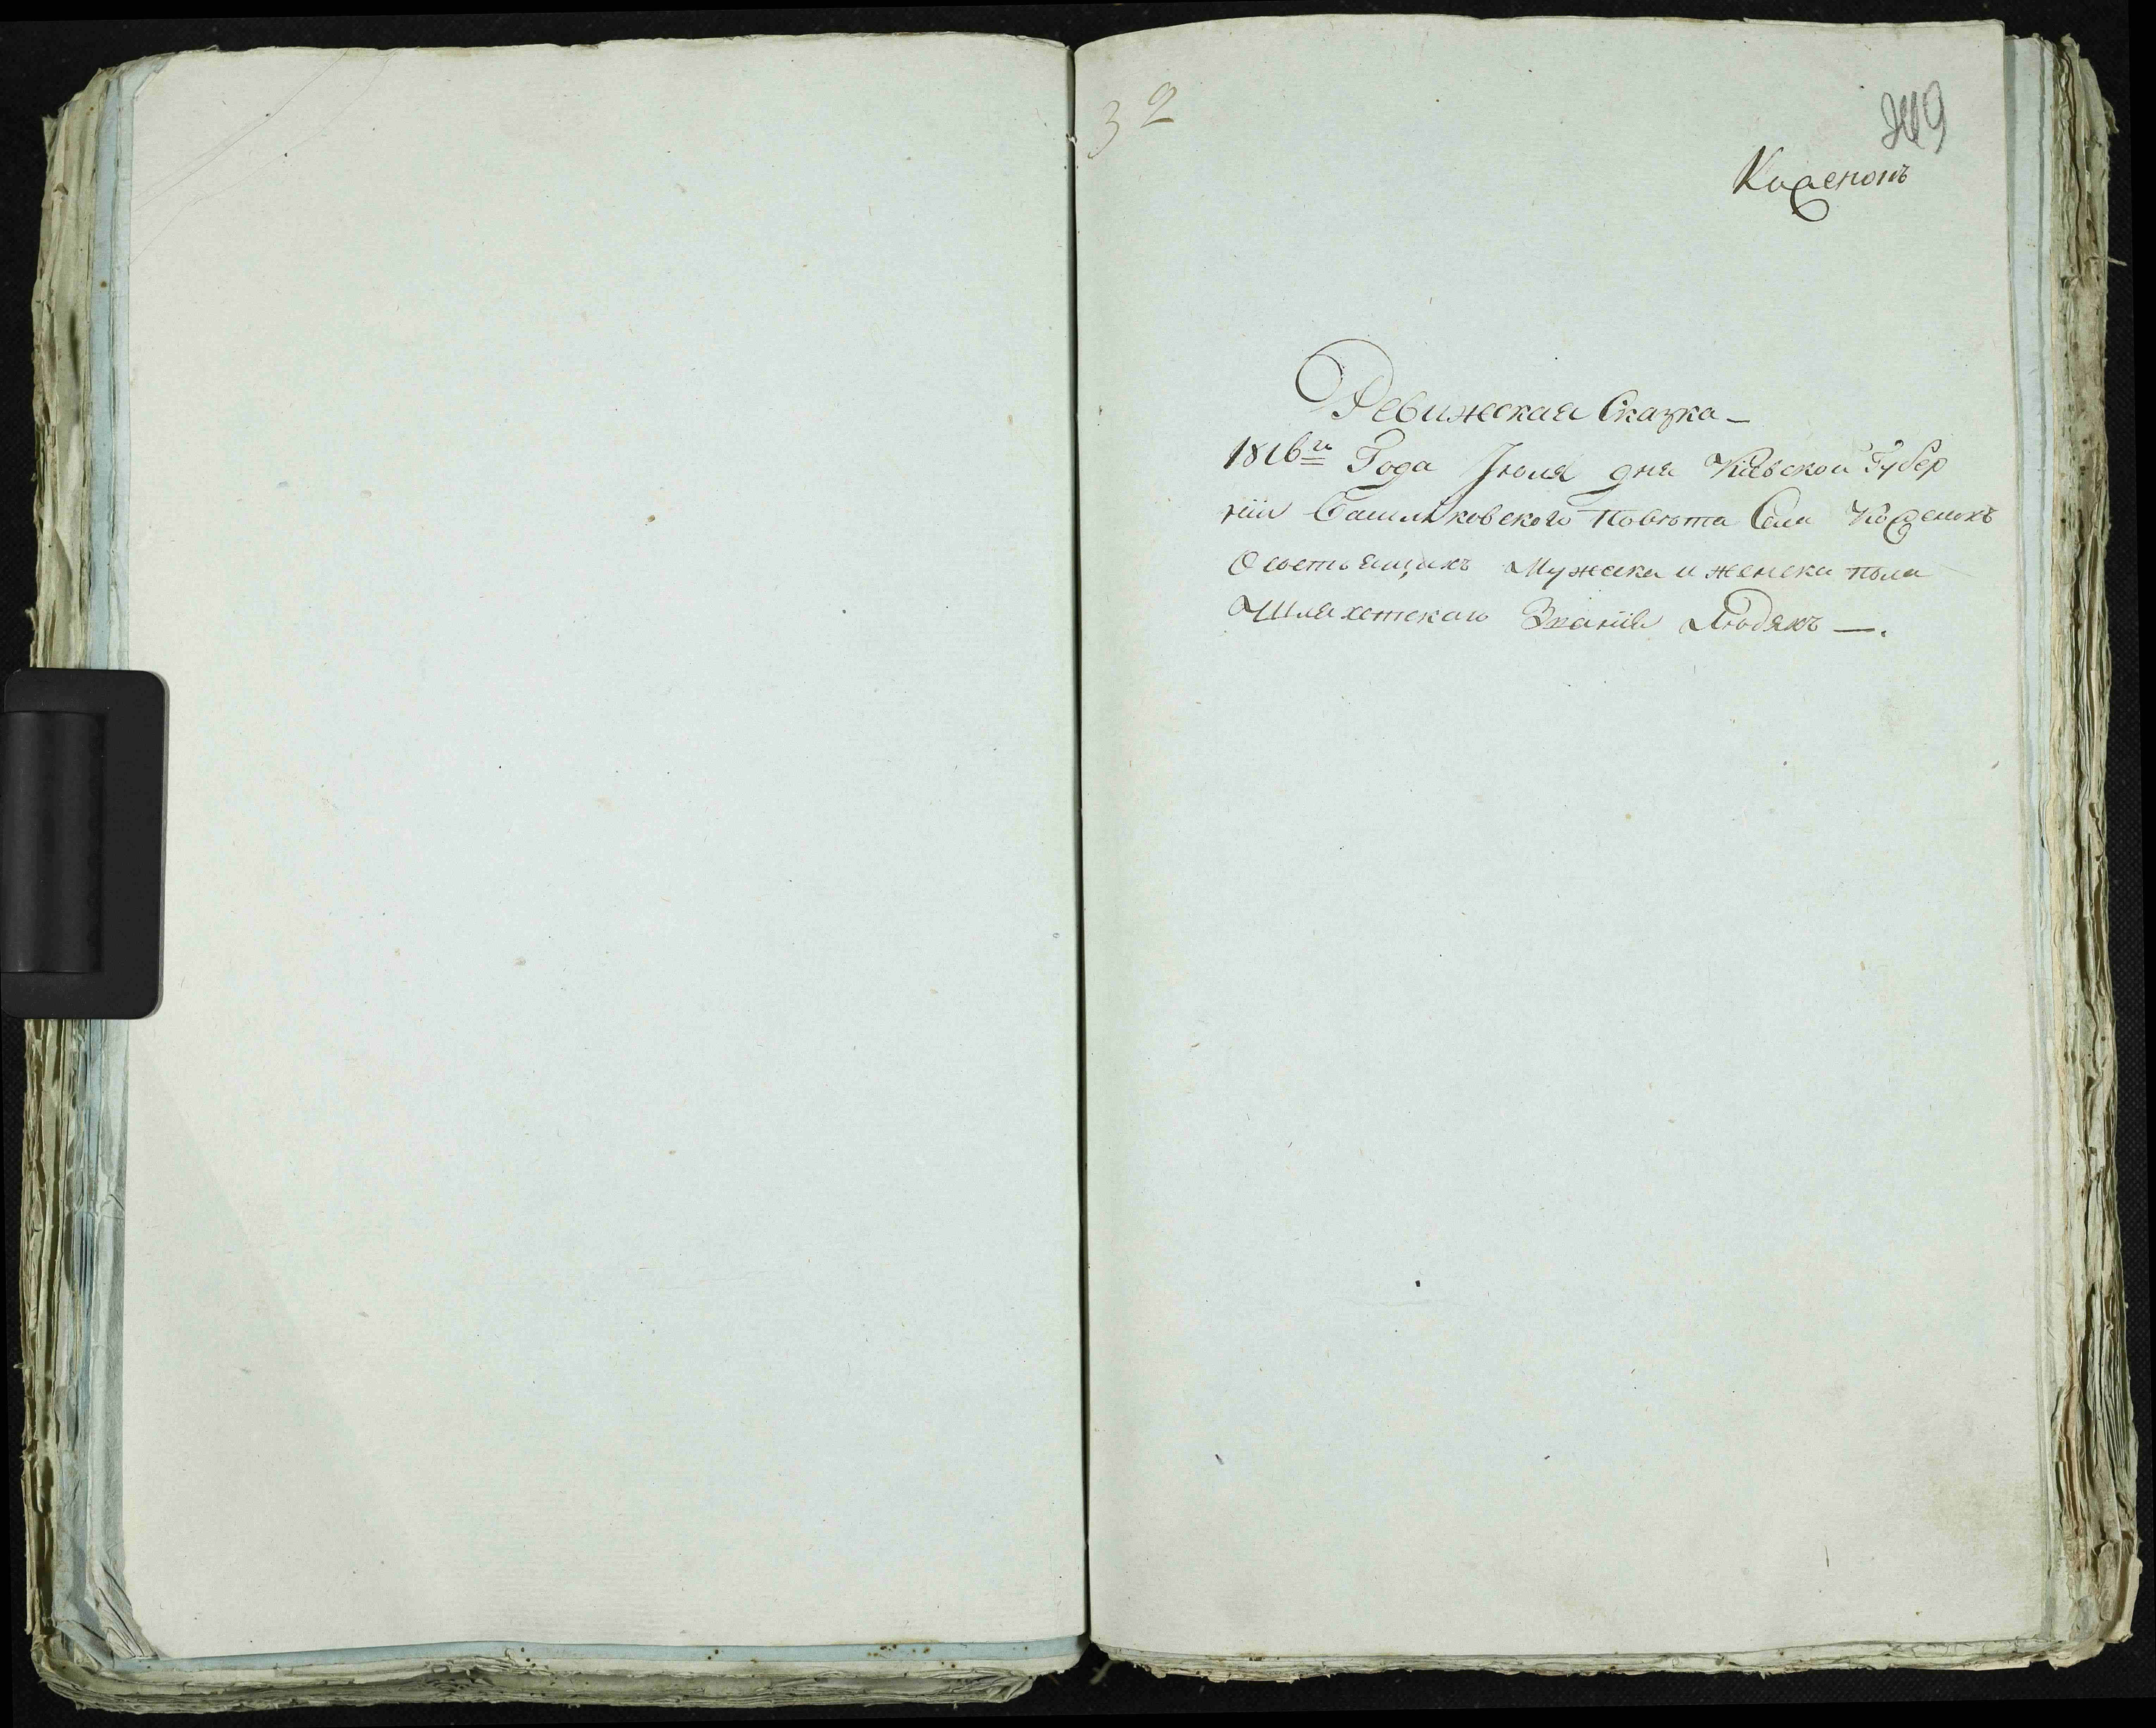 32
Кищенокъ
Ревижская Сказка —
1816го Года Июля дня Кіевской Губер
ніи Васильковского Повѣта Села Кощенокъ
О состоящихъ Мужеска и женска пола
Шляхетскаго Званія Людяхъ —.